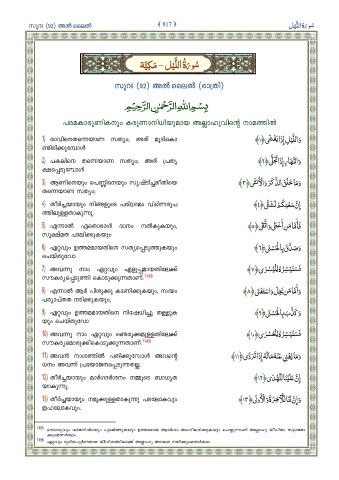 സൂറഃ (92) അൽ ലൈൽ
﴾ 817 ﴿
سُورَةُ اللَّيْلِ
سُورَةُ اللَّيْلِ - مَكِّيَّة
സൂറഃ (92) അൽ ലൈൽ (രാത്രി)
بِسْمِ اللَّهِ الرَّحْمَٰنِ الرَّحِيمِ
പരമകാരുണികനും കരുണാനിധിയുമായ അല്ലാഹുവിന്റെ നാമത്തിൽ
1) രാവിനെതന്നെയാണ സത്യം; അത് മൂടികൊ
ണ്ടിരിക്കുമ്പോൾ
وَاللَّيْلِ إِذَا يَغْشَىٰ ﴿١﴾
2) പകലിനെ തന്നെയാണ സത്യം; അത് പ്രത്യ
ക്ഷപ്പെടുമ്പോൾ
وَالنَّهَارِ إِذَا تَجَلَّىٰ ﴿٢﴾
3) ആണിനെയും പെണ്ണിനെയും സൃഷ്ടിച്ചരീതിയെ
തന്നെയാണ സത്യം;
وَمَا خَلَقَ الذَّكَرَ وَالْأُنْثَىٰ ﴿٣﴾
4) തീർച്ചയായും നിങ്ങളുടെ പരിശ്രമം വിഭിന്നരൂപ
ത്തിലുള്ളതാകുന്നു.
إِنَّ سَعْيَكُمْ لَشَتَّىٰ ﴿٤﴾
5) എന്നാൽ ഏതൊരാൾ ദാനം നൽകുകയും,
സൂക്ഷ്മത പാലിക്കുകയും
فَأَمَّا مَنْ أَعْطَىٰ وَاتَّقَىٰ ﴿٥﴾
6) ഏറ്റവും ഉത്തമമായതിനെ സത്യപ്പെടുത്തുകയും
ചെയ്തുവോ
وَصَدَّقَ بِالْحُسْنَىٰ ﴿٦﴾
7) അവന്നു നാം ഏറ്റവും എളുപ്പമായതിലേക്ക്
സൗകര്യപ്പെടുത്തി കൊടുക്കുന്നതാണ്.
فَسَنُيَسِّرُهُ لِلْيُسْرَىٰ ﴿٧﴾
8) എന്നാൽ ആര് പിശുക്കു കാണിക്കുകയും, സ്വയം
പര്യാപ്തത നടിക്കുകയും,
وَأَمَّا مَنْ بَخِلَ وَاسْتَغْنَىٰ ﴿٨﴾
9) ഏറ്റവും ഉത്തമമായതിനെ നിഷേധിച്ചു തള്ളുക
യും ചെയ്തുവോ
وَكَذَّبَ بِالْحُسْنَىٰ ﴿٩﴾
10) അവന്നു നാം ഏറ്റവും ഞെരുക്കമുള്ളതിലേക്ക്
സൗകര്യമൊരുക്കികൊടുക്കുന്നതാണ്.
فَسَنُيَسِّرُهُ لِلْعُسْرَىٰ ﴿١٠﴾
11) അവൻ നാശത്തിൽ പതിക്കുമ്പോൾ അവന്റെ
ധനം അവന് പ്രയോജനപ്പെടുന്നതല്ല.
وَمَا يُغْنِي عَنْهُ مَالُهُ إِذَا تَرَدَّىٰ ﴿١١﴾
12) തീർച്ചയായും മാർഗദർശനം നമ്മുടെ ബാധ്യത
യാകുന്നു.
إِنَّ عَلَيْنَا لَلْهُدَىٰ ﴿١٢﴾
13) തീർച്ചയായും നമുക്കുള്ളതാകുന്നു പരലോകവും
ഇഹലോകവും.
وَإِنَّ لَنَا لَلْآخِرَةَ وَالْأُولَىٰ ﴿١٣﴾